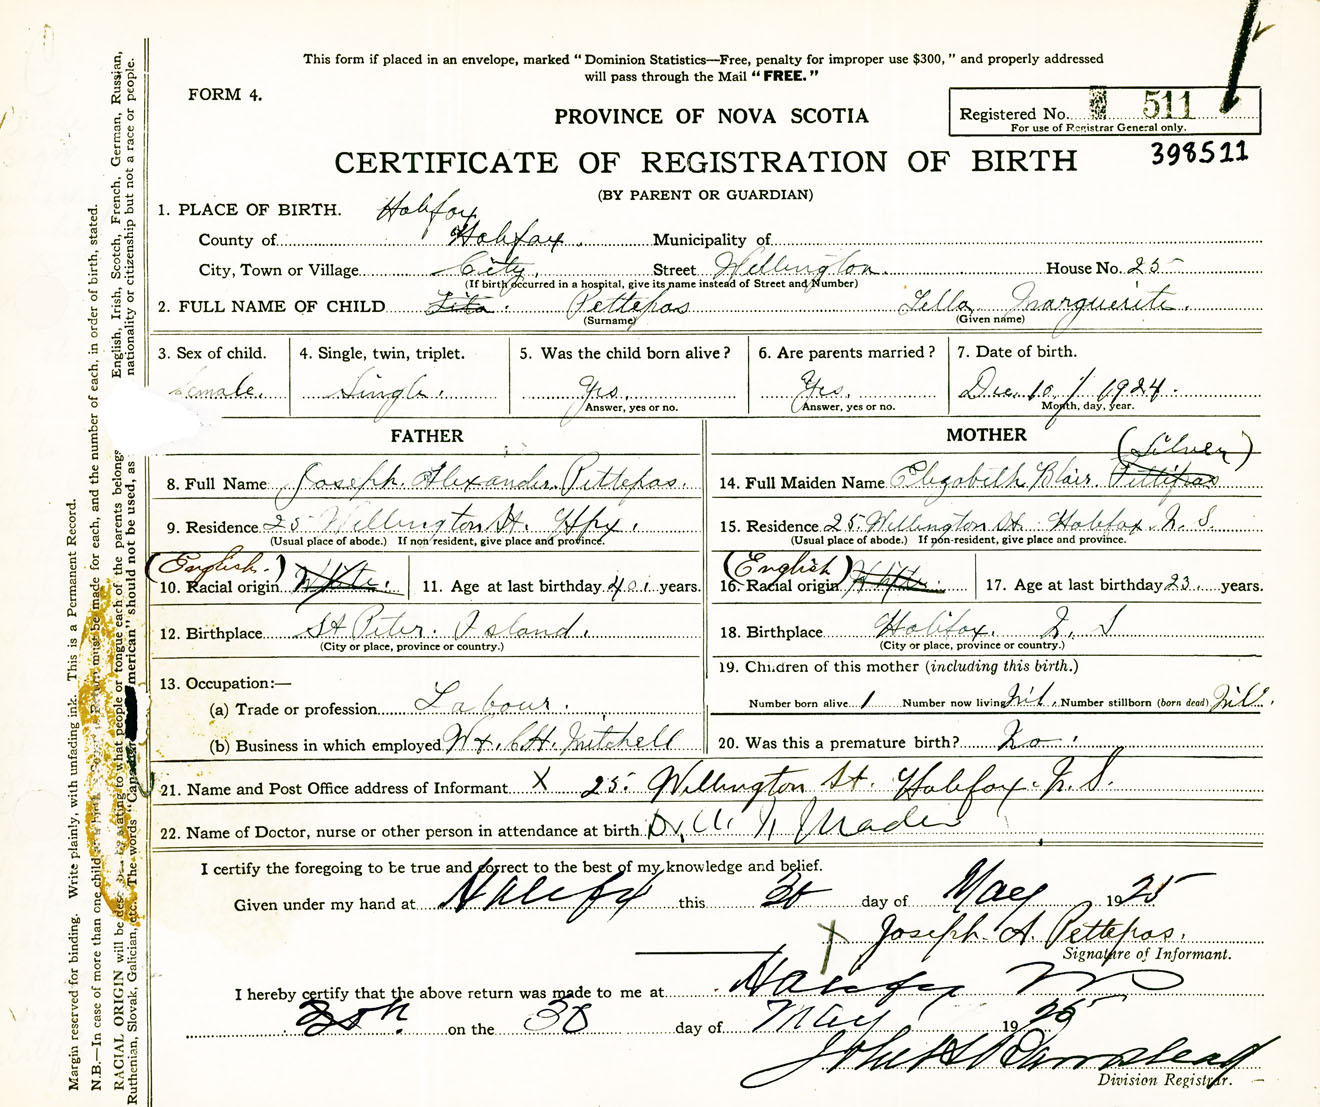 This form if placed in an envelope, marked "Dominion Statistics—Free, penalty for improper use $300," and properly addressed
will pass through the Mail "FREE."
FORM 4.
PROVINCE OF NOVA SCOTIA
Registered No. 511
For use of Registrar General only.
398511
CERTIFICATE OF REGISTRATION OF BIRTH
(BY PARENT OR GUARDIAN)
1. PLACE OF BIRTH. Halifax
County of Halifax. Municipality of
City, Town or Village City. Street Wellington. House No. 25
(If birth occurred in a hospital, give its name instead of Street and Number)
2. FULL NAME OF CHILD Pettepas Lella Marguerite.
(Surname) (Given name)
3. Sex of child. 4. Single, twin, triplet. 5. Was the child born alive? 6. Are parents married? 7. Date of birth.
Female. Single. Yes. Yes. Dec. 10 / 1924.
Answer, yes or no. Answer, yes or no. Month, day, year.
FATHER MOTHER
(Silver)
8. Full Name Joseph Alexander Pettepas. 14. Full Maiden Name Elizabeth Blair. Pettipas
9. Residence 25 Wellington St. Hfx. 15. Residence 25 Wellington St Halifax N. S.
(Usual place of abode.) If non resident, give place and province. (Usual place of abode.) If non-resident, give place and province.
(English.) (English)
10. Racial origin White. 11. Age at last birthday 40 years. 16. Racial origin White. 17. Age at last birthday 23. years.
12. Birthplace St Peter. Island. 18. Birthplace Halifax. N. S
(City or place, province or country.) (City or place, province or country.)
19. Children of this mother (including this birth.)
13. Occupation:—
(a) Trade or profession Labour. Number born alive 1 Number now living Nil. Number stillborn (born dead) Nil.
(b) Business in which employed C.H. Mitchell 20. Was this a premature birth? No.
21. Name and Post Office address of Informant X 25. Wellington St. Halifax. N. S.
22. Name of Doctor, nurse or other person in attendance at birth Dr. Mader
I certify the foregoing to be true and correct to the best of my knowledge and belief.
Given under my hand at Halifax this 30 day of May 1925
X Joseph. A. Pettepas.
Signature of Informant.
I hereby certify that the above return was made to me at Halifax
on the 30 day of May 1925
Division Registrar.
Margin reserved for binding. Write plainly, with unfading ink. This is a Permanent Record.
N.B.—In case of more than one child must be made for each, and the number of each, in order of birth, stated.
RACIAL ORIGIN will be relating to what people or tongue each of the parents belongs English, Irish, Scotch, French, German, Russian,
Ruthenian, Slovak, Galician, etc. The words "Canadian" "American" should not be used, as nationality or citizenship but not a race or people.